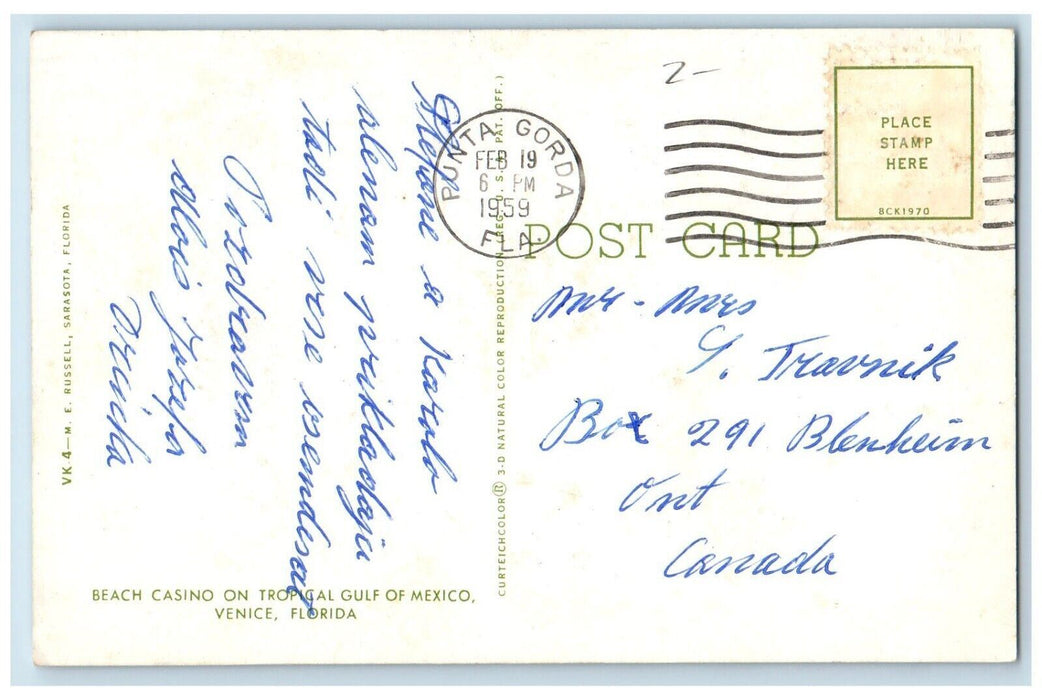 2-
PUNTA GORDA
FEB 19
6 PM
1959
FLA.
PLACE
STAMP
HERE
BCK1970
POST CARD
Mr - Mrs
Travnik
Box 291 Blenheim
Ont
Canada
a Karolo
vse osemdesat
Pozdravam
Alois Jozefa
BEACH CASINO ON TROPICAL GULF OF MEXICO,
VENICE, FLORIDA
VK-4—M. E. RUSSELL, SARASOTA, FLORIDA
CURTEICHCOLOR® 3-D NATURAL COLOR REPRODUCTION (REG. U. S. PAT. OFF.)